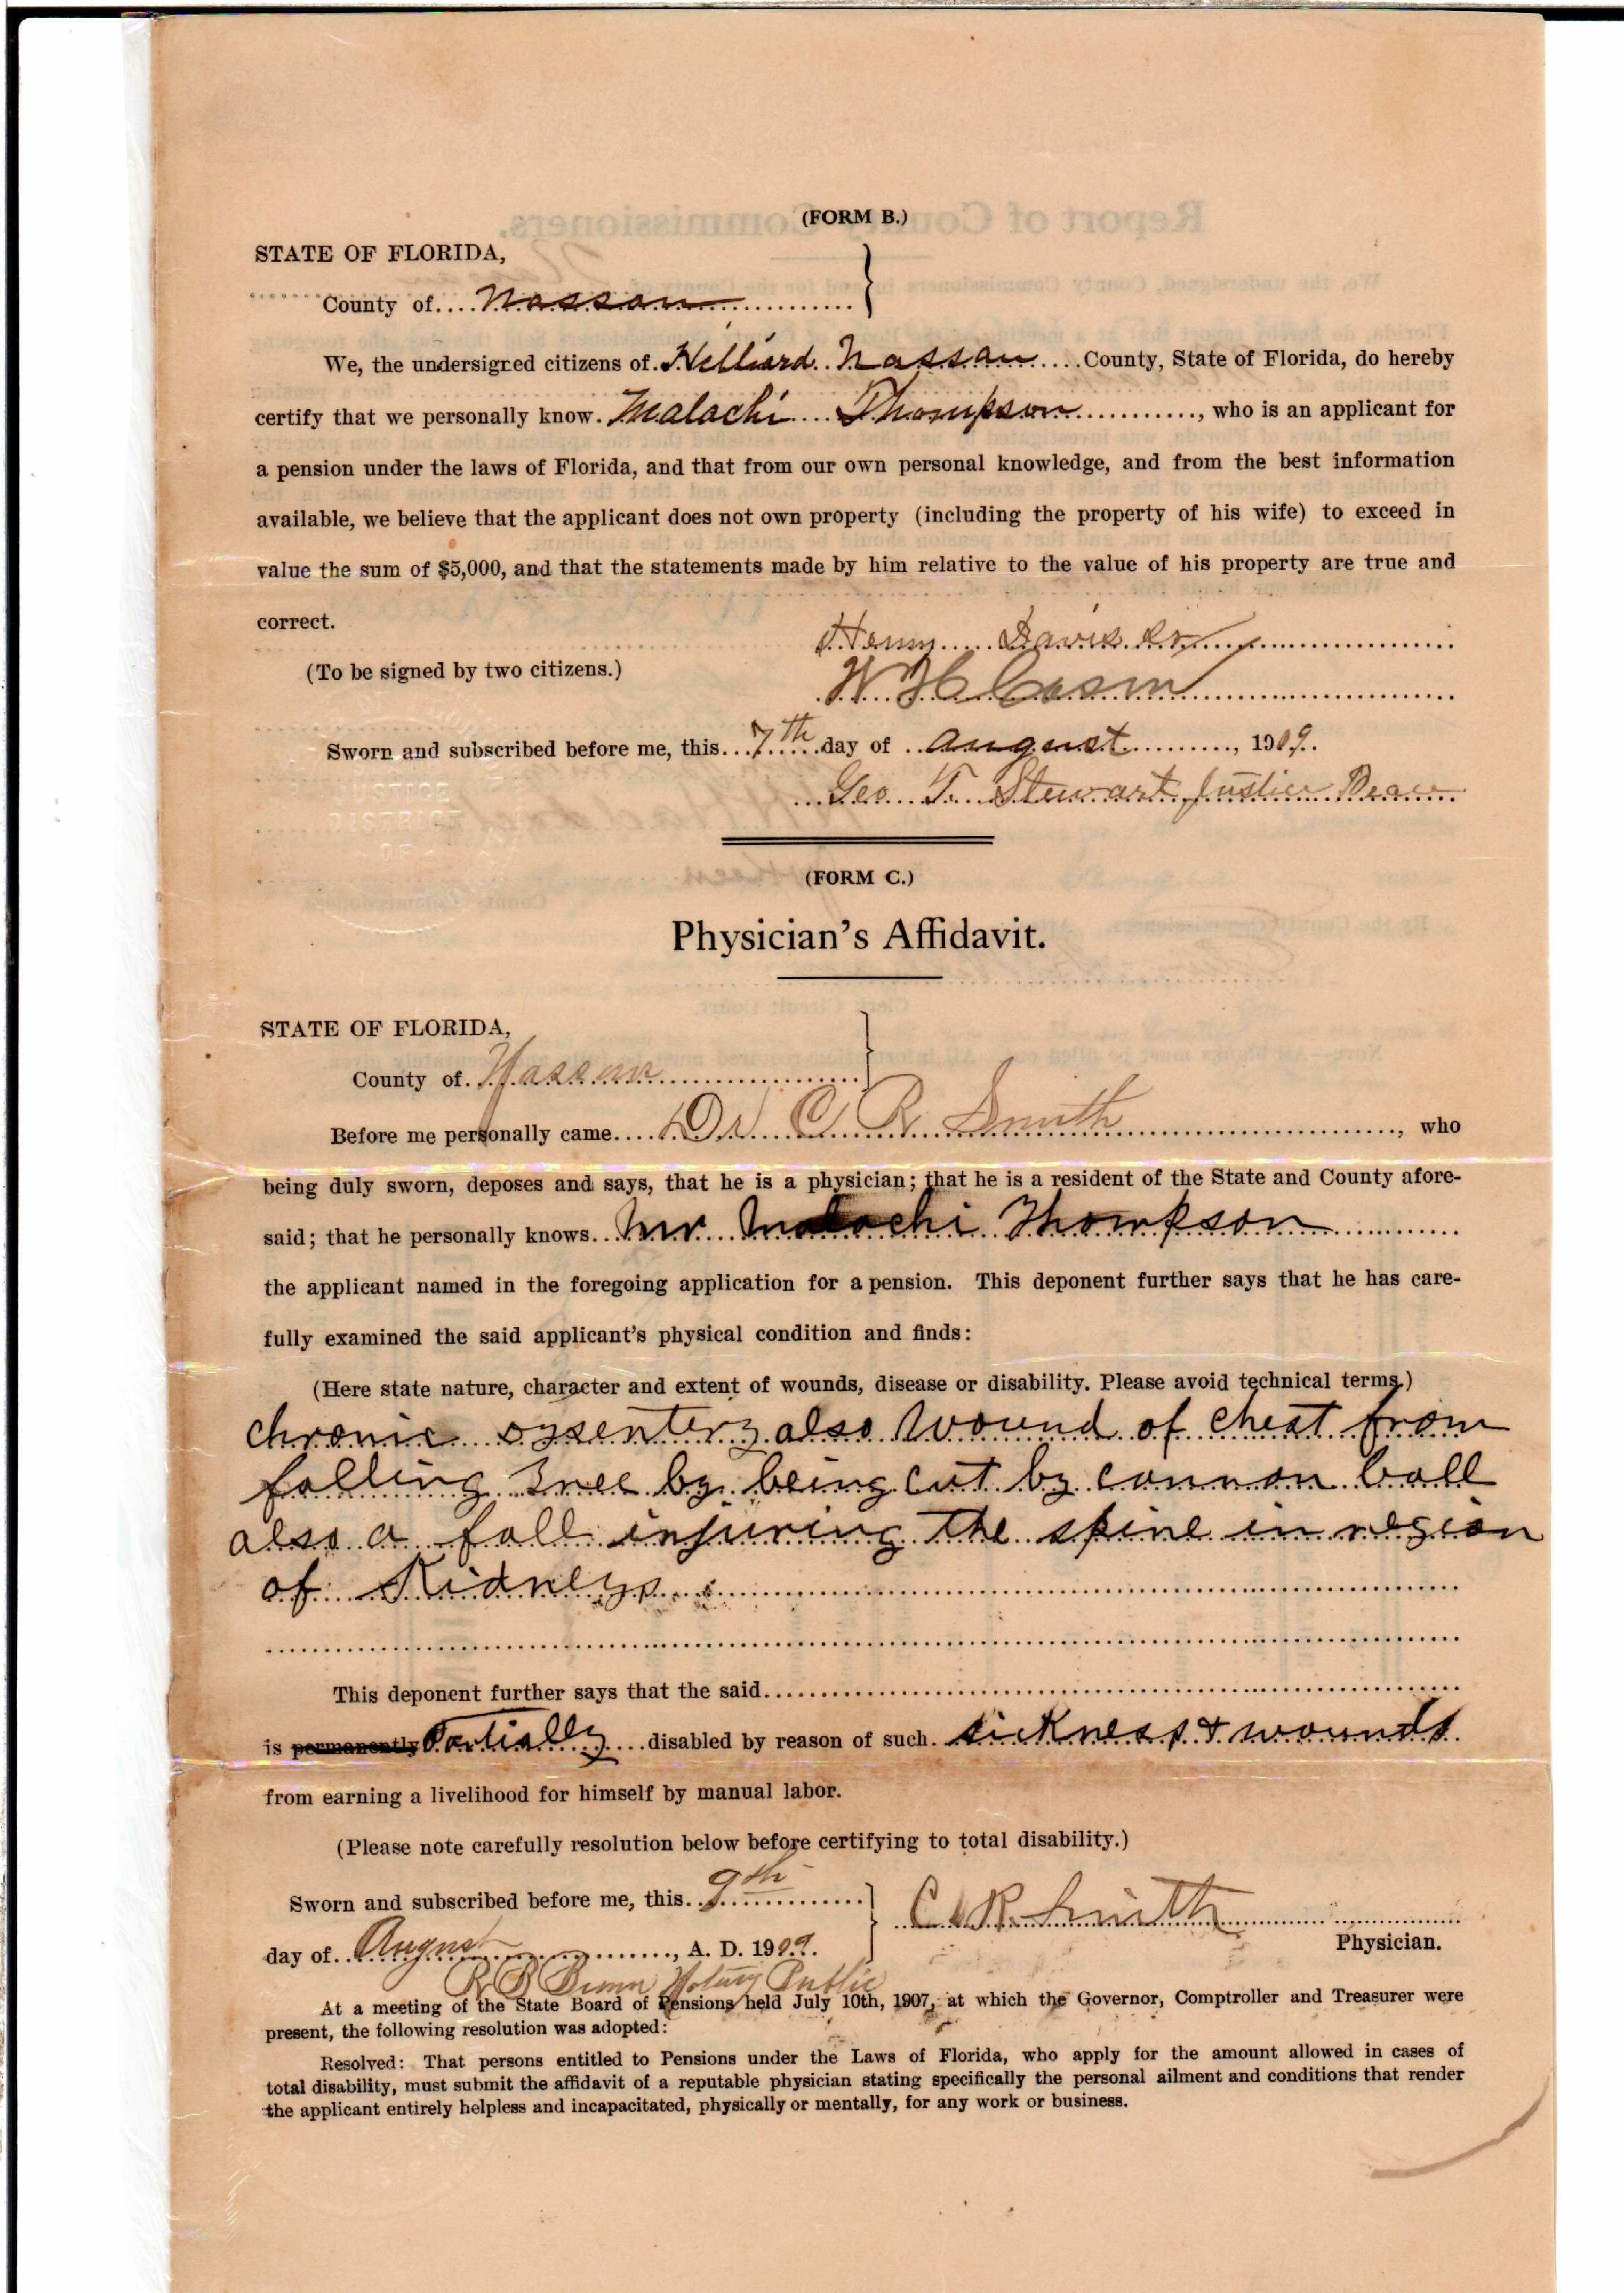 (FORM B.)
STATE OF FLORIDA,
County of Nassau
We, the undersigned citizens of Hilliard Nassau County, State of Florida, do hereby
certify that we personally know Malachi Thompson, who is an applicant for
a pension under the laws of Florida, and that from our own personal knowledge, and from the best information
available, we believe that the applicant does not own property (including the property of his wife) to exceed in
value the sum of $5,000, and that the statements made by him relative to the value of his property are true and
correct.
Henry Davis Sr
(To be signed by two citizens.)
W H
Sworn and subscribed before me, this 7th day of August, 1909.
Geo. T. Stewart Justice Peace
JUSTICE
DISTRICT
OF
(FORM C.)
Physician's Affidavit.
STATE OF FLORIDA,
County of Nassau
Before me personally came Dr C R Smith, who
being duly sworn, deposes and says, that he is a physician; that he is a resident of the State and County afore-
said; that he personally knows Mr. Malachi Thompson
the applicant named in the foregoing application for a pension. This deponent further says that he has care-
fully examined the said applicant's physical condition and finds:
(Here state nature, character and extent of wounds, disease or disability. Please avoid technical terms.)
chronic dysentery also wound of chest from
falling tree by being cut by cannon ball
also a fall injuring the spine in region
of Kidneys
This deponent further says that the said
is permanently Partially disabled by reason of such sickness & wounds
from earning a livelihood for himself by manual labor.
(Please note carefully resolution below before certifying to total disability.)
Sworn and subscribed before me, this 9th
C R Smith
day of August, A. D. 1909.
Physician.
R B Notary Public
At a meeting of the State Board of Pensions held July 10th, 1907, at which the Governor, Comptroller and Treasurer were
present, the following resolution was adopted:
Resolved: That persons entitled to Pensions under the Laws of Florida, who apply for the amount allowed in cases of
total disability, must submit the affidavit of a reputable physician stating specifically the personal ailment and conditions that render
the applicant entirely helpless and incapacitated, physically or mentally, for any work or business.